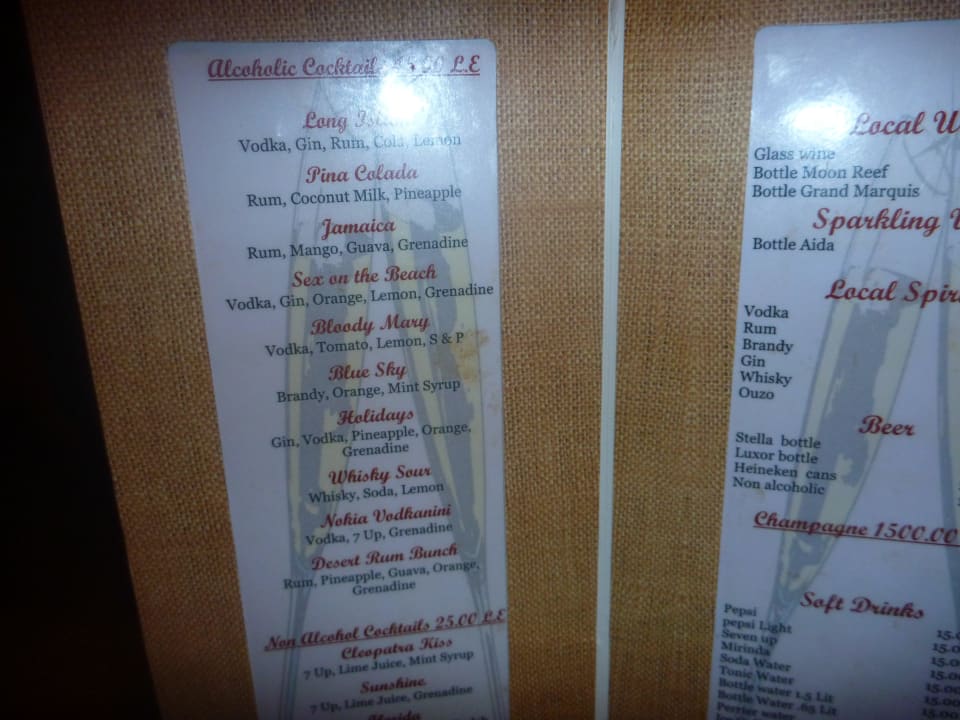 Alcoholic Cocktails L.E
Long
Vodka, Gin, Rum, Cola, Lemon
Pina Colada
Rum, Coconut Milk, Pineapple
Jamaica
Rum, Mango, Guava, Grenadine
Sex on the Beach
Vodka, Gin, Orange, Lemon, Grenadine
Bloody Mary
Vodka, Tomato, Lemon, S & P
Blue Sky
Brandy, Orange, Mint Syrup
Holidays
Gin, Vodka, Pineapple, Orange,
Grenadine
Whisky Sour
Whisky, Soda, Lemon
Nokia Vodkanini
Vodka, 7 Up, Grenadine
Desert Rum Bunch
Rum, Pineapple, Guava, Orange,
Grenadine
Non Alcohol Cocktails 25.00 L.E
Cleopatra Kiss
7 Up, Lime Juice, Mint Syrup
Sunshine
7 Up, Lime Juice, Grenadine
Local
Glass wine
Bottle Moon Reef
Bottle Grand Marquis
Sparkling
Bottle Aida
Local
Vodka
Rum
Brandy
Gin
Whisky
Ouzo
Beer
Stella bottle
Luxor bottle
Heineken cans
Non alcoholic
Champagne 1500.00
Soft Drinks
Pepsi
pepsi Light
Seven up
Mirinda
Soda Water
Tonic Water
Bottle water 1.5 Lit
Bottle Water .65 Lit
Perrier water